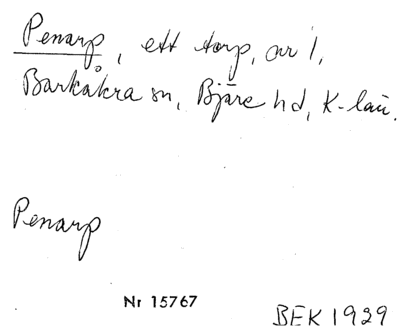 Penarp, ett torp, av 1,
Barkåkra sn, Bjäre hd, K-län.
Penarp
Nr 15767
BEK 1929